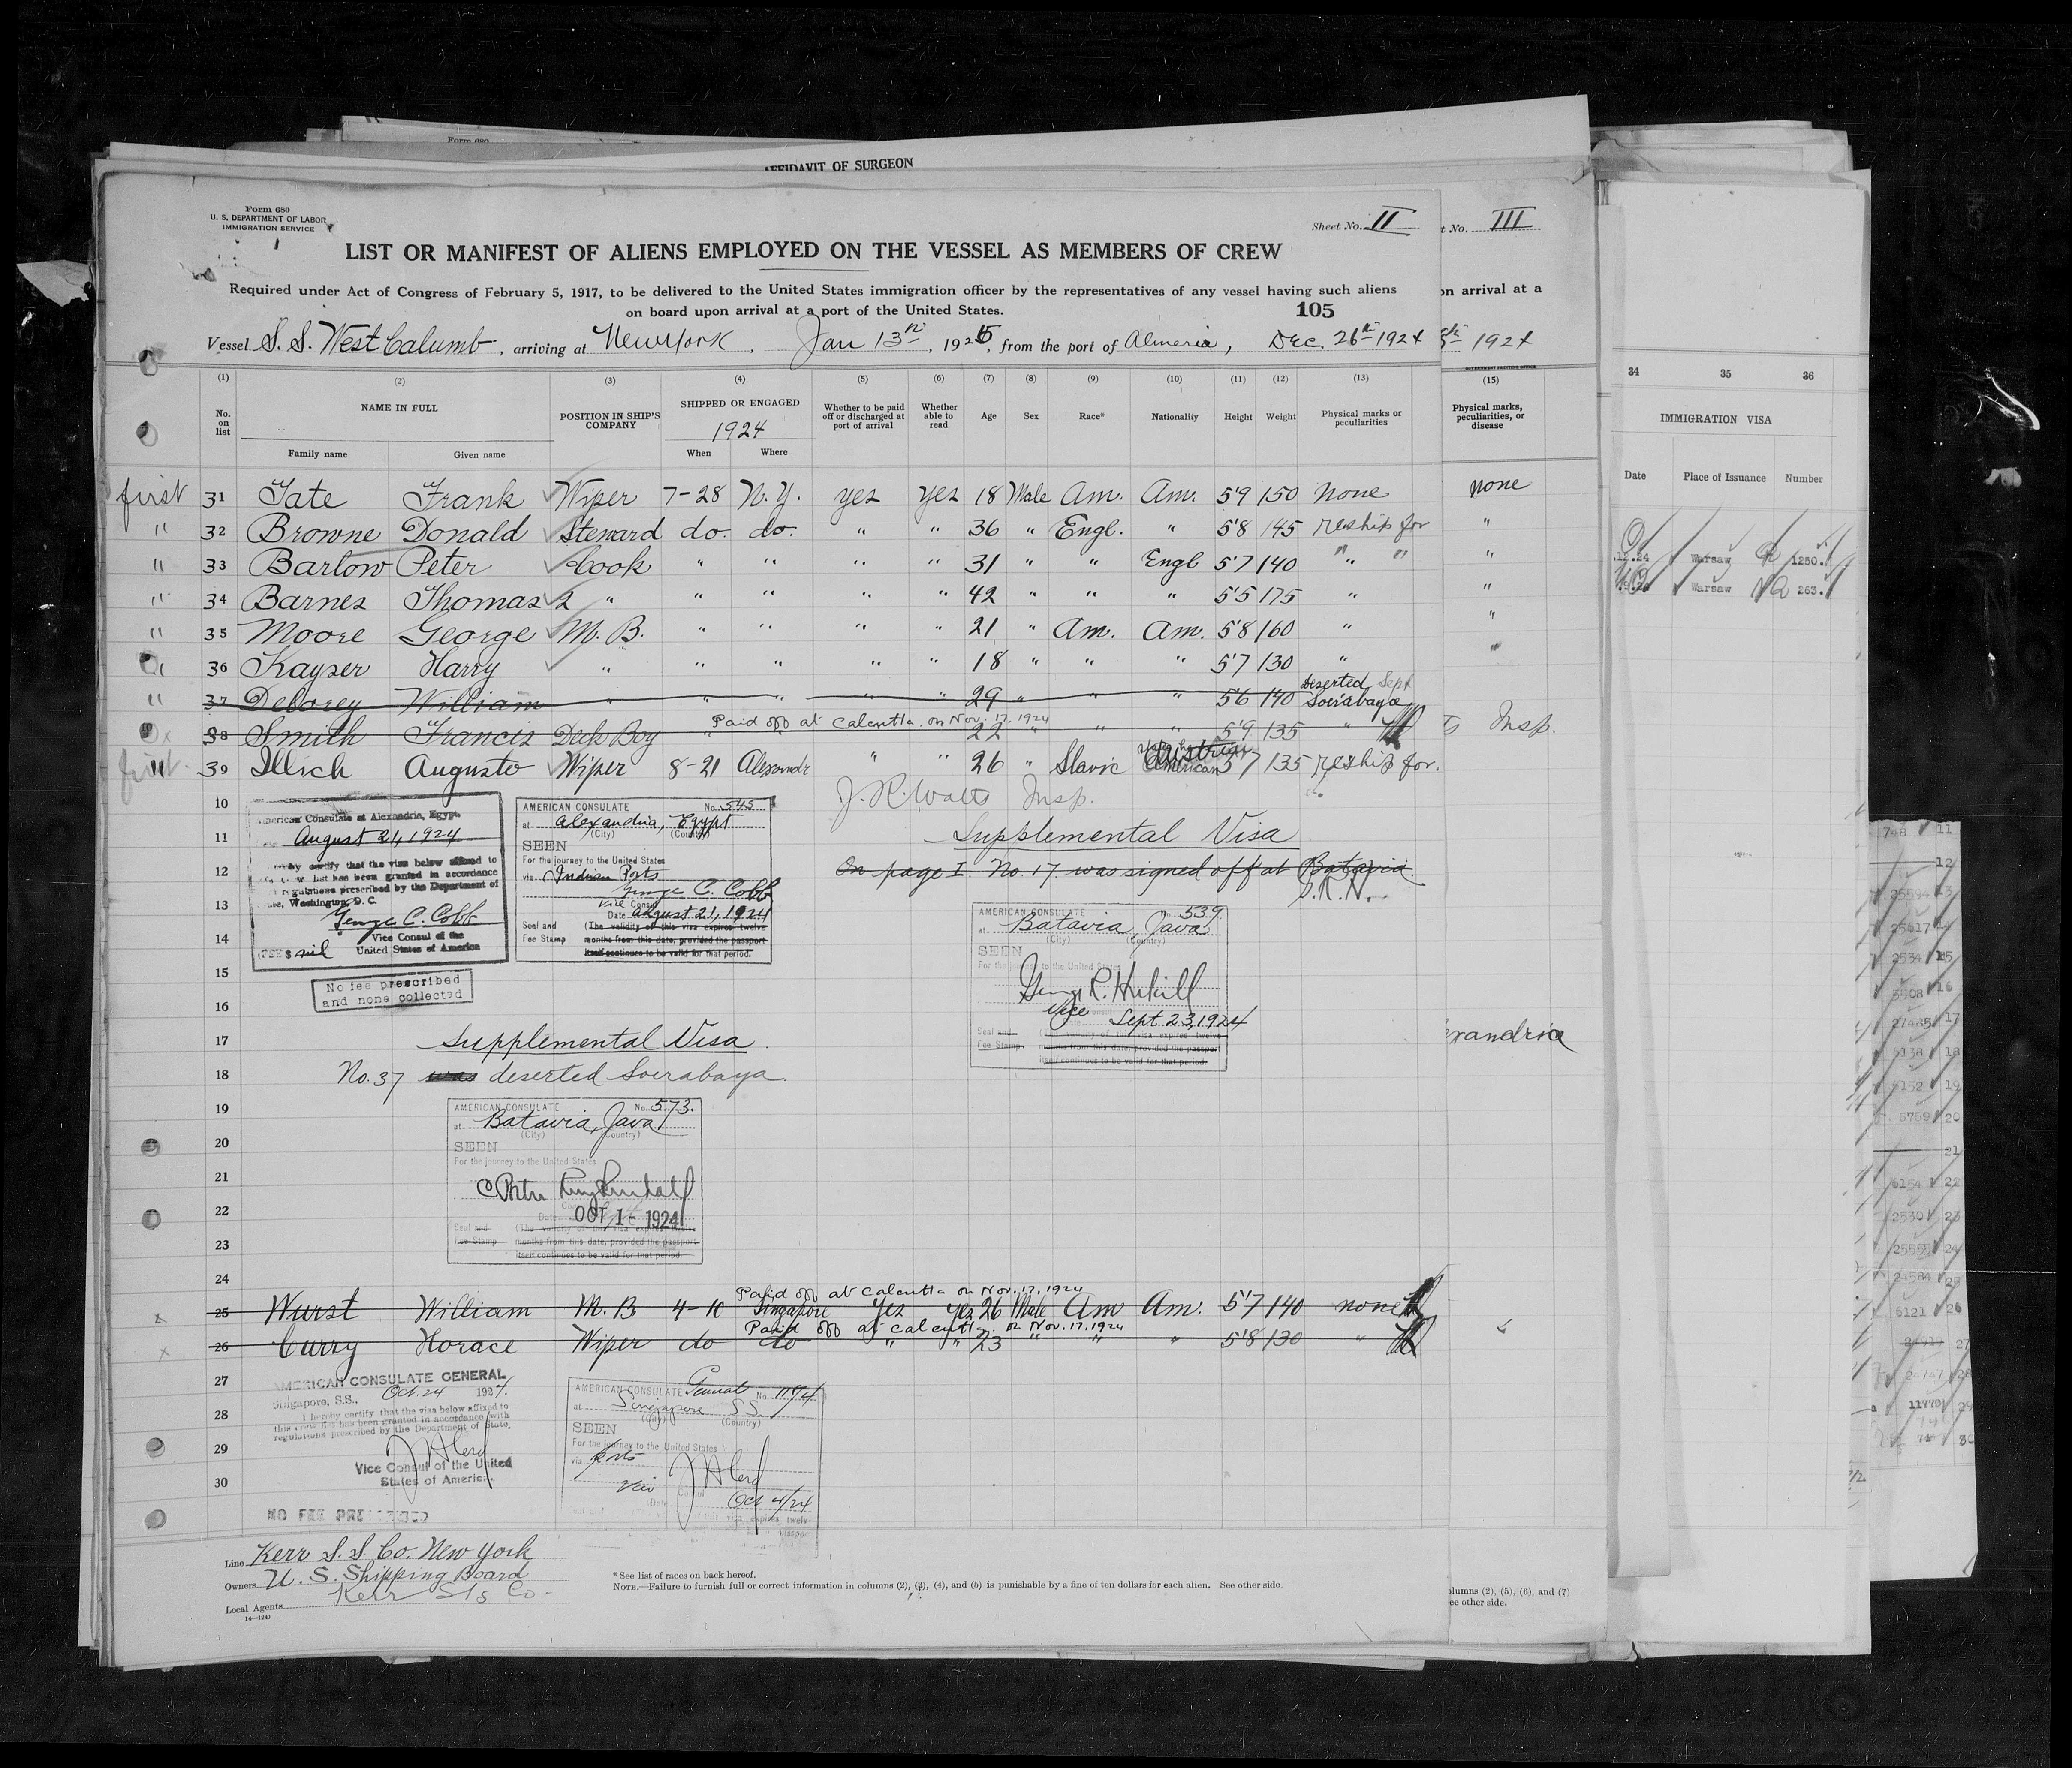 Form 680
AFFIDAVIT OF SURGEON
Form 680
U. S. DEPARTMENT OF LABOR
IMMIGRATION SERVICE
Sheet No. II
t No. III
LIST OR MANIFEST OF ALIENS EMPLOYED ON THE VESSEL AS MEMBERS OF CREW
Required under Act of Congress of February 5, 1917, to be delivered to the United States immigration officer by the representatives of any vessel having such aliens
on board upon arrival at a port of the United States.
105
on arrival at a
Vessel S. S. West Calumb, arriving at New York, Jan 13th, 1925, from the port of Almeria, Dec. 26th 1924
1924
(1) (2) (3) (4) (5) (6) (7) (8) (9) (10) (11) (12) (13) (15)
34 35 36
No. on list
NAME IN FULL
Family name Given name
POSITION IN SHIP'S COMPANY
SHIPPED OR ENGAGED
1924
When Where
Whether to be paid off or discharged at port of arrival
Whether able to read
Age Sex Race* Nationality Height Weight
Physical marks or peculiarities
Physical marks, peculiarities, or disease
IMMIGRATION VISA
Date Place of Issuance Number
first 31 Tate Frank Wiper 7-28 N.Y. yes yes 18 Male Am. Am. 5'9 150 none none
" 32 Browne Donald Steward do. do. " " 36 " Engl. " 5'8 145 reship for "
" 33 Barlow Peter Cook " " " " 31 " " Engl 5'7 140 " " "
" 34 Barnes Thomas 2 " " " " " 42 " " " 5'5 175 " "
" 35 Moore George M. B. " " " " 21 " Am. Am. 5'8 160 " "
" 36 Kayser Harry " " " " " 18 " " " 5'7 130 " "
" 37 Delorey William " " " " " 29 " " " 5'6 140 Deserted Sept Soerabaya
Paid off at Calcutta on Nov. 17, 1924
38 Smith Francis Deck Boy 22 " " " 5'9 135 "
Insp.
first 39 Illich Augusto Wiper 8-21 Alexandr " " 26 " Slavic Austrian American 5'7 135 reship for.
Warsaw 1250.
Warsaw 263.
J. R. Watts Insp.
10
11
12
13
14
15
16
17
18
19
20
21
22
23
24
American Consulate at Alexandria, Egypt.
August 21, 1924
certify that the visa below affixed to
list has been granted in accordance
regulations prescribed by the Department of
Washington, D. C.
George C. Cobb
Vice Consul of the
United States of America
FEE $ nil
No fee prescribed
and none collected
AMERICAN CONSULATE No. 545
at Alexandria, Egypt
(City) (Country)
SEEN
For the journey to the United States
via Indian Ports
George C. Cobb
Vice Consul
Date August 21, 1924
Seal and
Fee Stamp
(The validity of this visa expires twelve
months from this date, provided the passport
itself continues to be valid for that period.
Supplemental Visa
On page I. No. 17 was signed off at Batavia.
AMERICAN CONSULATE 539.
at Batavia, Java
(City) (Country)
SEEN
For the journey to the United States
George R. Hukill
Vice Consul
Sept 23, 1924
Seal and
Fee Stamp
months from this date, provided the passport
itself continues to be valid for that period.
xandria
Supplemental Visa
No. 37 was deserted Soerabaya.
AMERICAN CONSULATE No. 573.
at Batavia, Java
(City) (Country)
SEEN
For the journey to the United States
Date OCT 1 - 1924
Seal and
Fee Stamp
(The validity of this visa expires twelve
months from this date, provided the passport
itself continues to be valid for that period.
Paid off at Calcutta on Nov. 17, 1924
25 Wurst William M. B 4-10 Singapore yes yes 26 Male Am Am. 5'7 140 none
Paid off at Calcutta on Nov. 17, 1924
26 Curry Horace Wiper do do " " 23 " " " 5'8 130 "
27
28
29
30
AMERICAN CONSULATE GENERAL
Singapore, S.S., Oct. 24 1924.
I hereby certify that the visa below affixed to
this crew list has been granted in accordance with
regulations prescribed by the Department of State.
Vice Consul of the United
States of America.
NO FEE PRESCRIBED
AMERICAN CONSULATE General No.
at Singapore S.S.
(City) (Country)
SEEN
For the journey to the United States
via ports
Vice Consul
Date
Line Kerr S. S. Co. New York
Owners U. S. Shipping Board
Local Agents Kerr S/s Co.
14—1240
*See list of races on back hereof.
NOTE.—Failure to furnish full or correct information in columns (2), (3), (4), and (5) is punishable by a fine of ten dollars for each alien. See other side.
olumns (2), (5), (6), and (7)
ee other side.